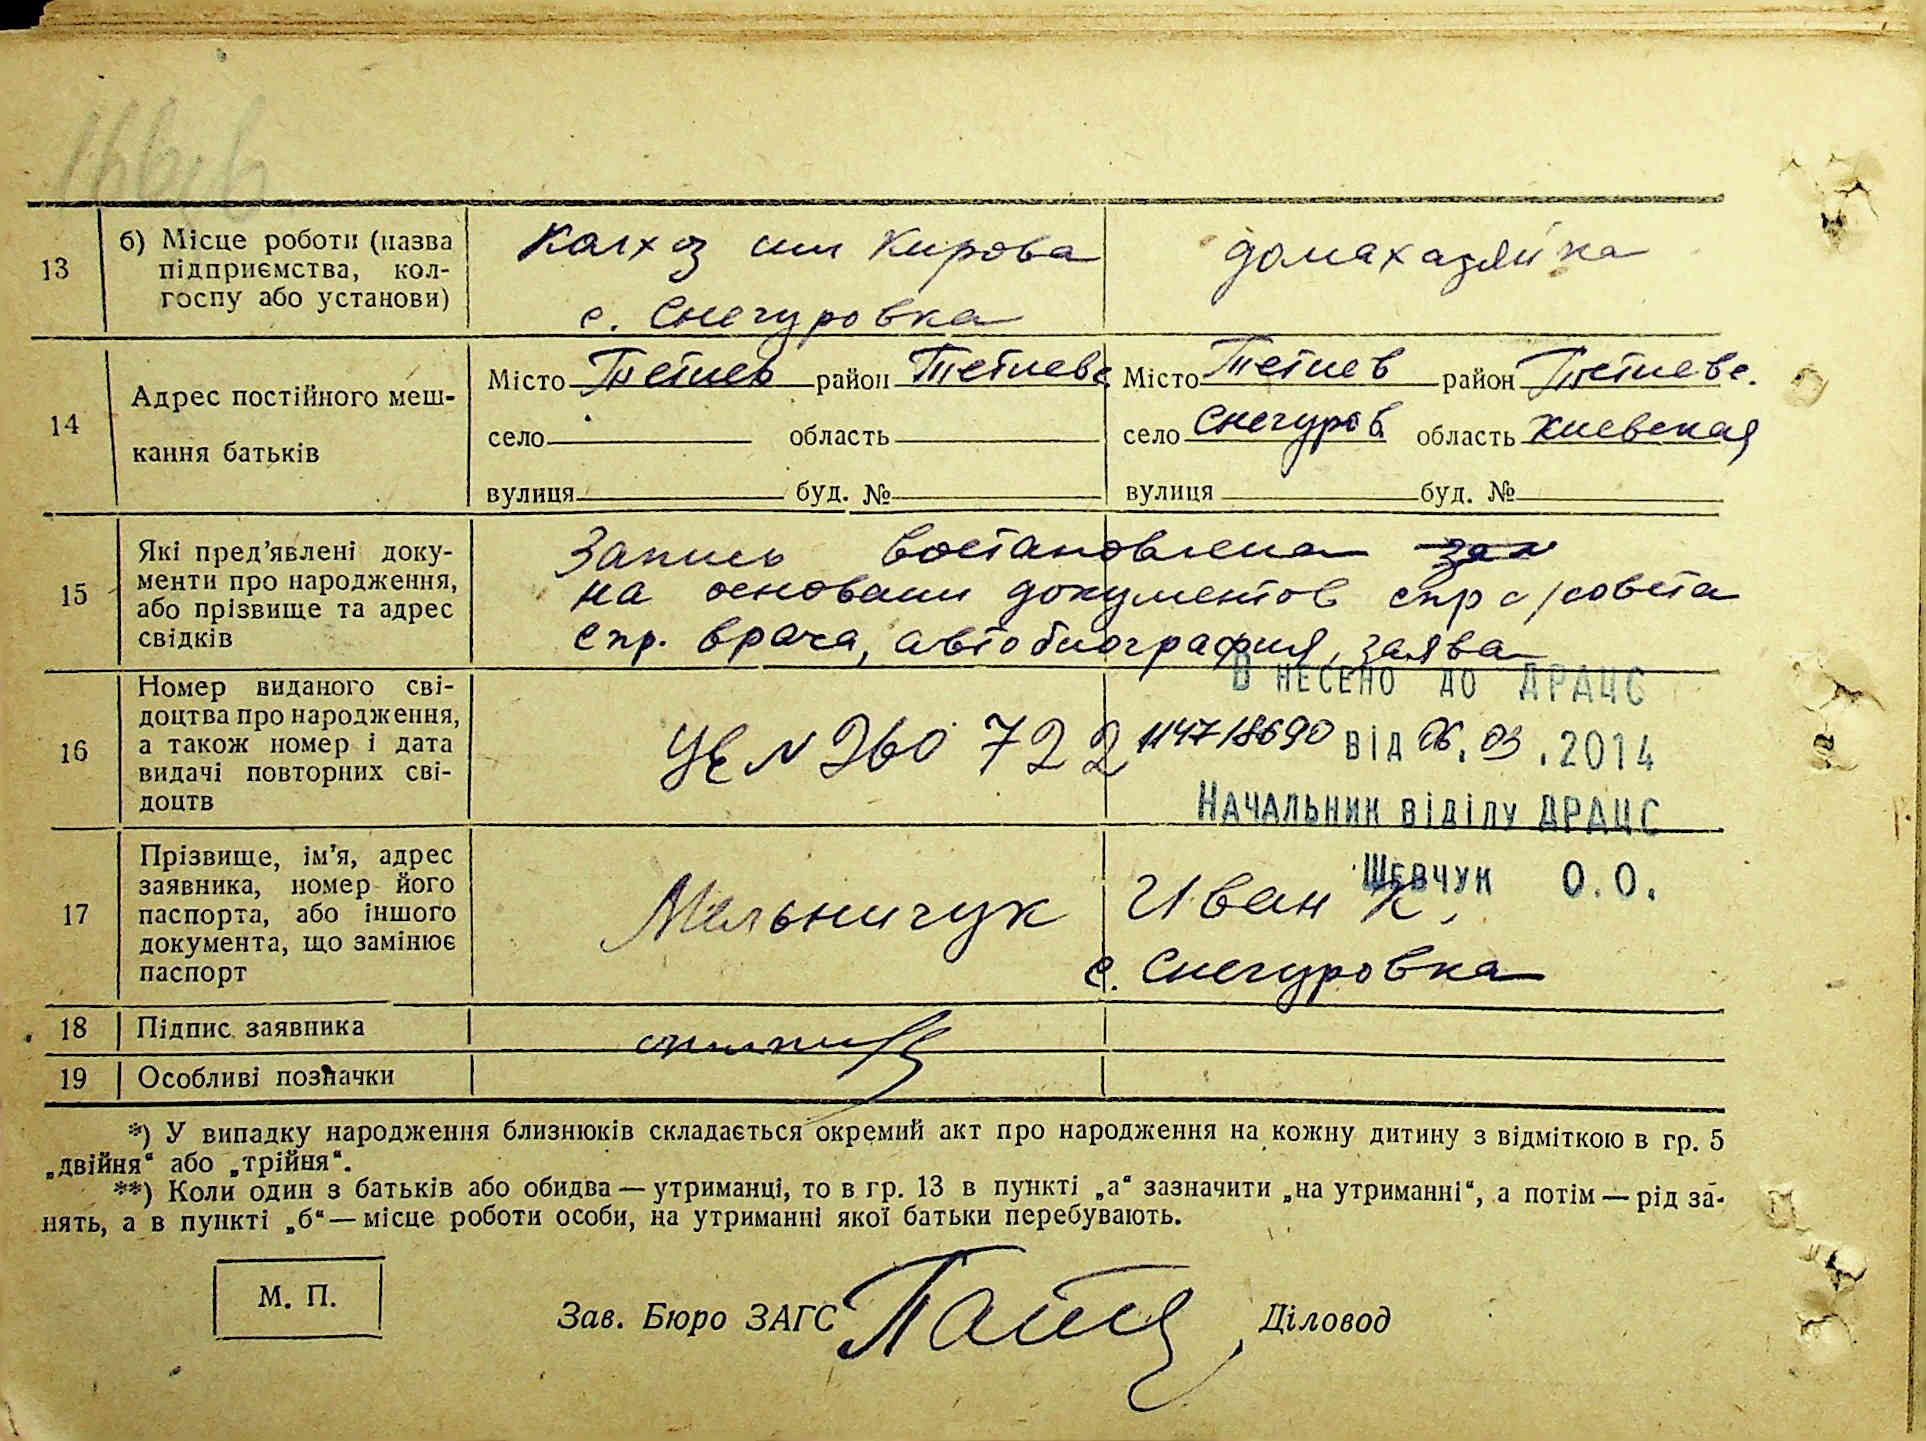 13
б) Місце роботи (назва
підприємства, кол-
госпу або установи)
Калхоз им Кирова
с. Снегуровка
домахазяйка
14
Адрес постійного меш-
кання батьків
Місто Тетиев район Тетиевс
село область
вулиця буд. №
Місто Тетиев район Тетиевс.
село Снегуров. область Киевская
вулиця буд. №
15
Які пред’явлені доку-
менти про народження,
або прізвище та адрес
свідків
Запись востановлена зап
на основани документов спр с/совета
спр. врача, автобиография, заява
16
Номер виданого сві-
доцтва про народження,
а також номер і дата
видачі повторних сві-
доцтв
N 260 722
ВНЕСЕНО ДО ДРАЦС
1147/8690 від 06.03.2014
НАЧАЛЬНИК ВІДІЛУ ДРАЦС
ШЕВЧУК О.О.
17
Прізвище, ім’я, адрес
заявника, номер його
паспорта, або іншого
документа, що замінює
паспорт
Мельничук Иван К.
с. Снегуровка
18
Підпис заявника
19
Особливі позначки
*) У випадку народження близнюків складається окремий акт про народження на кожну дитину з відміткою в гр. 5
„двійня“ або „трійня“.
**) Коли один з батьків або обидва — утриманці, то в гр. 13 в пункті „а“ зазначити „на утриманні“, а потім — рід за-
нять, а в пункті „б“ — місце роботи особи, на утриманні якої батьки перебувають.
М. П.
Зав. Бюро ЗАГС
Діловод